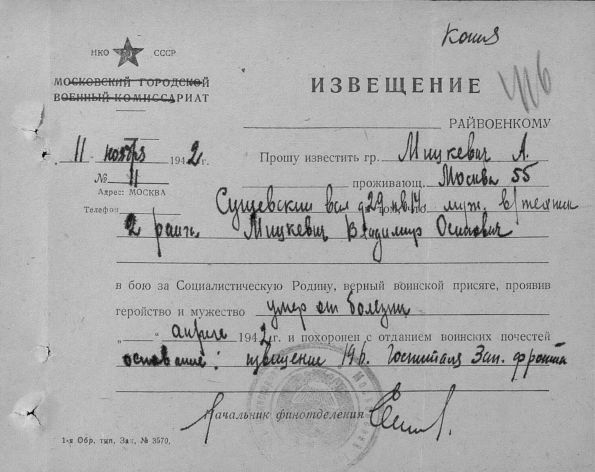 Копия
НКО СССР
МОСКОВСКИЙ ГОРОДСКОЙ
ВОЕННЫЙ КОМИССАРИАТ
ИЗВЕЩЕНИЕ
РАЙВОЕНКОМУ
11 ноября 1942 г.
№ 11
Адрес: МОСКВА
Телефон
Прошу известить гр. Мицкевич А.
проживающ. Москва 55
Сущевский вал д 29 кв 14 муж в/техник
2 ранга Мицкевич Владимир Осипович
в бою за Социалистическую Родину, верный воинской присяге, проявив
геройство и мужество умер от болезни
„ “ апреле 1942 г. и похоронен с отданием воинских почестей
основание: извещение Госпиталя Зап. фронта
Начальник финотделения
1-я Обр. тип. Зак. № 3570.